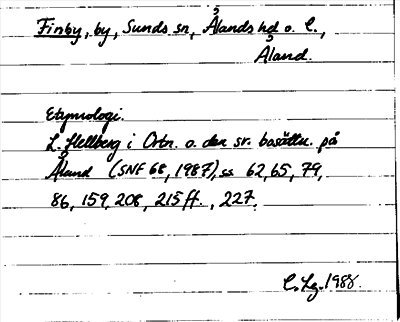 Finby, by, Sunds sn, Ålands hd o. l.,
Åland.
Etymologi.
L. Hellberg i Ortn. o. den sv. bosättn. på
Åland (SNF 68, 1987), ss. 62, 65, 79,
86, 159, 208, 215 ff., 227.
C. Lg. 1988